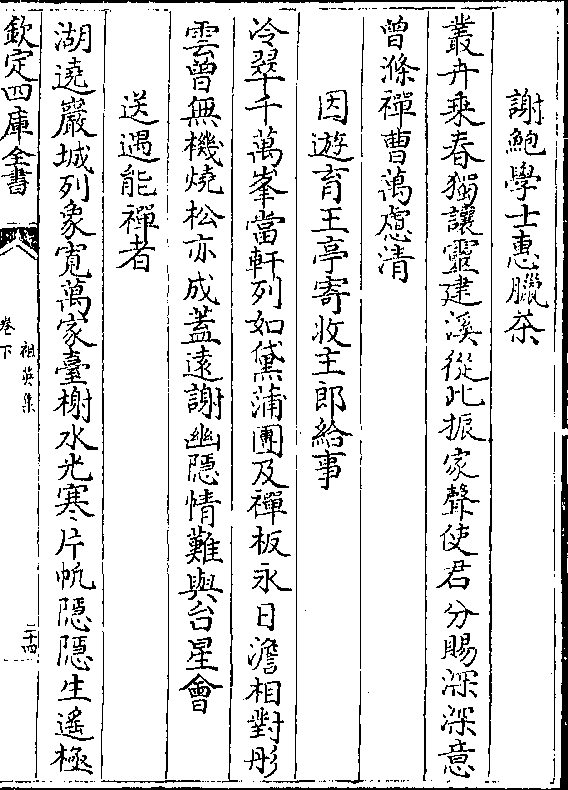 謝鮑學士惠臘茶
叢卉乗春獨讓靈建溪從此振家聲使君分賜深深意
曾滌禪曹萬慮清
因遊育王亭寄牧主郎給事
冷翠千萬峯當軒列如黛蒲團及禪板永日澹相對彤
雲曾無機燒松亦成蓋遠謝幽隱情難與台星會
送遇能禪者
湖遶巖城列象寛萬家臺榭水光寒片帆隱隱生遥極
欽定四庫全書
祖英集
卷下
二十四